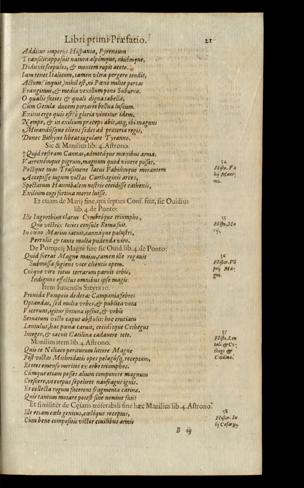 Libri primi Præfatio.
21
Additur imperiis Hispania, Pyrenæum
Transilit: opposuit natura alpémque, nivémque,
Diducit scopulos, & montem rupit aceto.
Iam tenet Italiam, tamen vltra pergere tendit,
Actum, inquit, nihil est, ni Pœno milite portas
Frangimus, & media vexillum pono Suburra.
O qualis facies & quali digna tabella,
Cum Getula ducem portaret bellua luscum.
Exitus ergo quis est? ô gloria vincitur idem,
Nempe, & in exilium præceps abit, atq; ibi magnus
Mirandúsque cliens sedet ad prætoria regis,
Donec Bithyno libeat vigilare Tyranno.
Sic & Manilius lib. 4. Astrono.
Quid referam Cannas, admotáque mœnibus arma
Varronémque
magnum quòd vivere posset,
Postque tuos Trasimene lacus Fabiúmque morantem
Accepisse iugum victæ Carthaginis arces,
Spectatum Hannibalem nostris cecidisse catenis,
Exilium
morte luisse.
Et etiam de Marij fine, qui septies Cons. fuit, sic Ouidius
lib. 4. de Ponto:
Ille Iugurthino clarus Cymbróque triumpho,
Quo victrix toties consule Roma fuit,
In cœno Marius iacuit, cannáque palustri,
Pertulit & tanto multa pudenda viro.
De Pompeij Magni fine sic Ouid. lib. 4. de Ponto:
Quid fuerat Magno maius, tamen ille rogauit
Submissa fugiens voce clientis opem.
Cuique viro totus terrarum paruit orbis,
Indigus effectus omnibus ipse magis.
Item Iuuenalis Satyra 10.
Prouida Pompeio dederat Campania febres
Optandas, sed multæ vrbes, & publica vota
Vicerunt, igitur fortuna ipsius, & vrbis
Seruatum victo caput abstulit: hoc cruciatu
Lentulus, hac pœna caruit, ceciditque Cethegus
Integer, & iacuit Catilina cadauere toto.
Manilius item lib. 4. Astrono.
Quis te Niliaco periturum litore Magne
Post victas Mithridatis opes pelagúsque receptum,
Et tres emenso meritos ex orbe triumphos,
Cùmque etiam posses alium componere magnum
Crederet, vt corpus sepeliret naufragus ignis,
Et eiectæ rogum facerent fragmenta carinæ,
Quis tantum mutare potest sine numine fati?
Et similiter de Cęsaris miserabili fine hæc Manilius lib. 4. Astrono.
Ille etiam cœlo genitus, cœlóque receptus,
Cùm bene composito victor ciuilibus armis
B iij
54
55
56
57
58